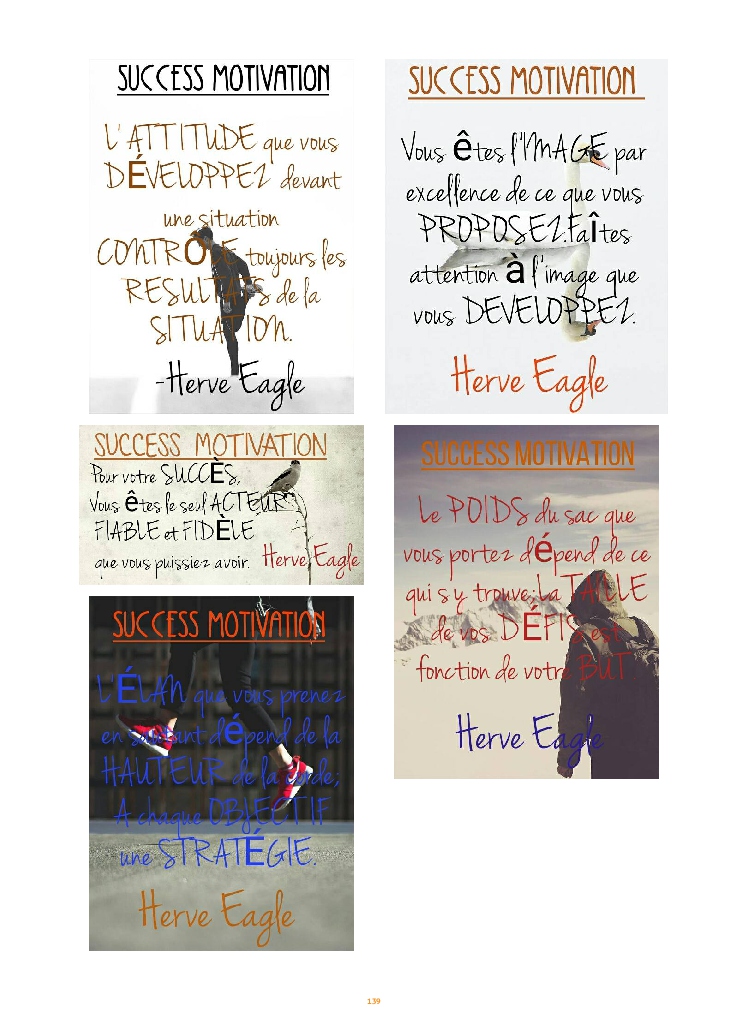 SUCCESS MOTIVATION
L'ATTITUDE que vous
DÉVELOPPEZ devant
une situation
CONTRÔLE toujours les
RESULTATS de la
SITUATION.
-Herve Eagle
SUCCESS MOTIVATION
Vous êtes l'IMAGE par
excellence de ce que vous
PROPOSEZ.Faîtes
attention à l'image que
vous DEVELOPPEZ.
Herve Eagle
SUCCESS MOTIVATION
Pour votre SUCCÈS,
Vous êtes le seul ACTEUR
FIABLE et FIDÈLE
que vous puissiez avoir. Herve Eagle
SUCCESS MOTIVATION
Le POIDS du sac que
vous portez dépend de ce
qui s y trouve;La TAILLE
de vos DÉFIS est
fonction de votre BUT
Herve Eagle
SUCCESS MOTIVATION
L'ÉLAN que vous prenez
en sautant dépend de la
HAUTEUR de la corde;
A chaque OBJECTIF
une STRATÉGIE.
Herve Eagle
139